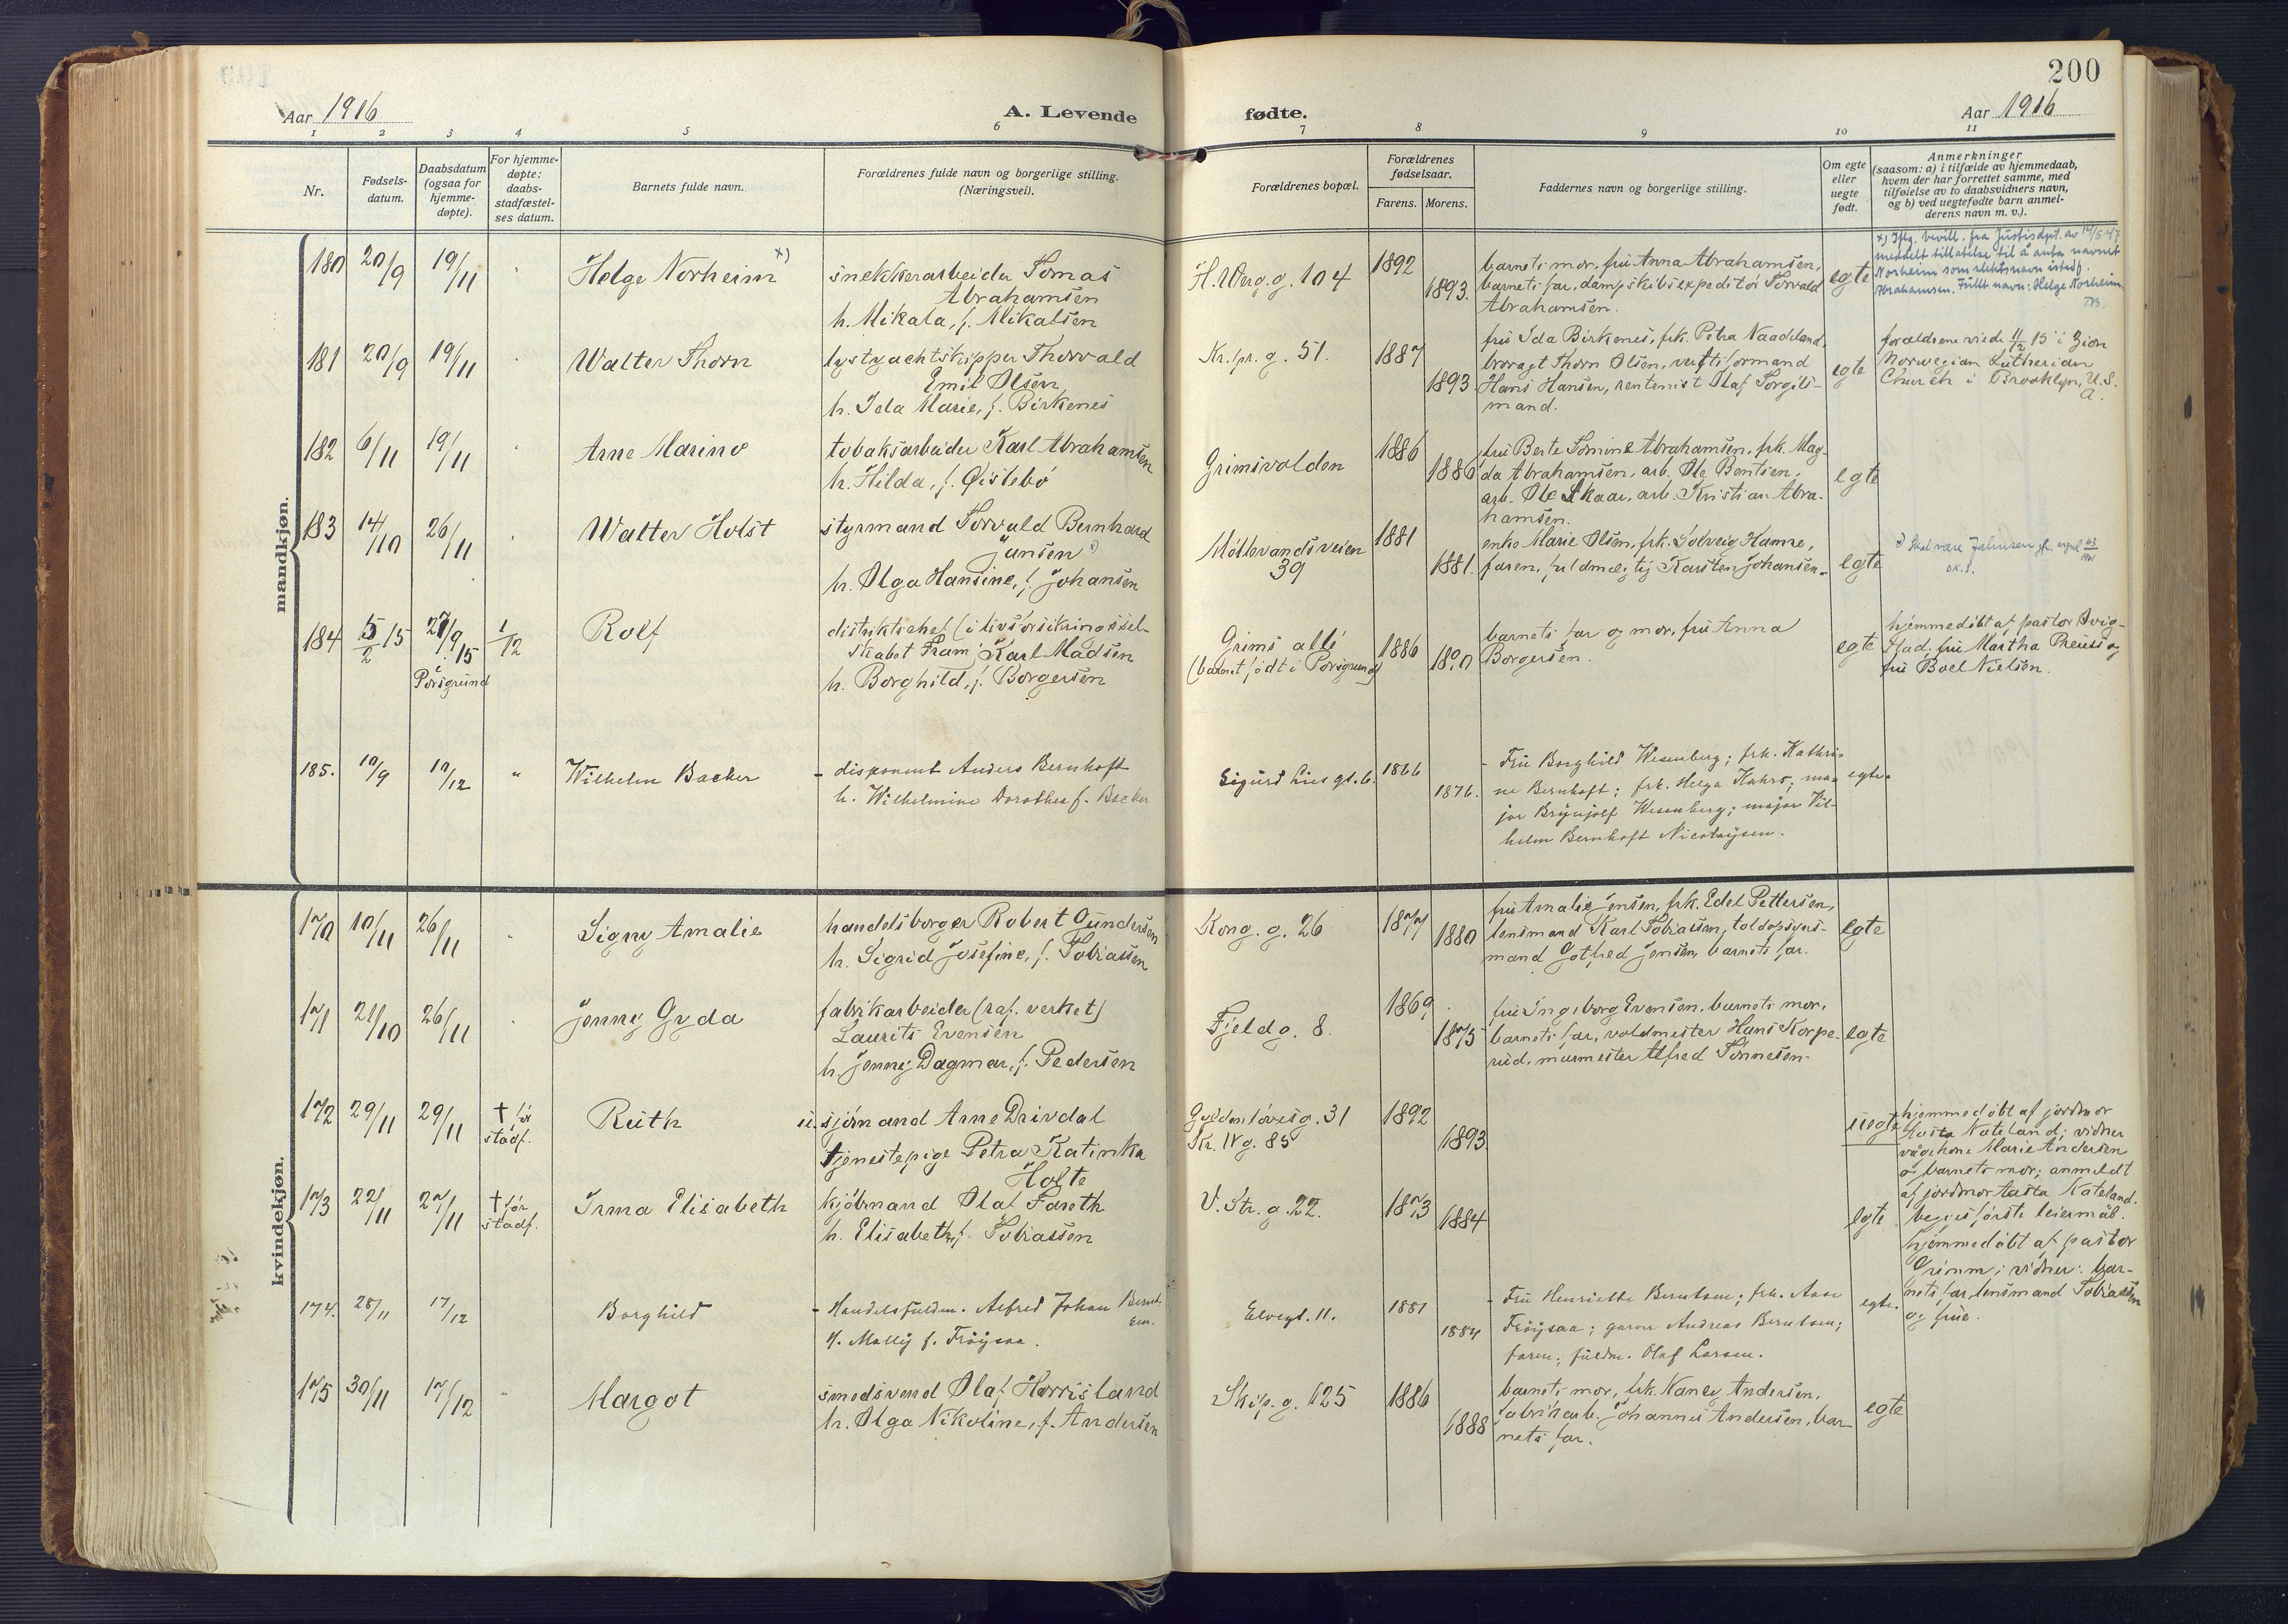 200
Aar 1916
A. Levende
fødte.
Aar 1916
1 2 3 4 5 6 7 8 9 10 11
Nr.
Fødsels-
datum.
Daabsdatum
(ogsaa for
hjemme-
døpte).
For hjemme-
døpte:
daabs-
stadfæstel-
ses datum.
Barnets fulde navn.
Forældrenes fulde navn og borgerlige stilling.
(Næringsvei).
Forældrenes bopæl.
Forældrenes
fødselsaar.
Farens. Morens.
Faddernes navn og borgerlige stilling.
Om egte
eller
uegte
født.
Anmerkninger
(saasom: a) i tilfælde av hjemmedaab,
hvem der har forrettet samme, med
tilføielse av to daabsvidners navn,
og b) ved uegtefødte barn anmel-
derens navn m. v.).
mandkjøn.
180 20/9 19/11 Helge Norheim x)
snekkerarbeider Tomas
Abrahamsen
h. Mikala, f. Mikalsen
H. Werg. g. 104
1892
1893.
barnets mor, fru Anna Abrahamsen,
barnets far, dampskibsexpeditør Torvald
Abrahamsen.
egte
x) Iflg. bevill. fra Justisdpt. av 14/5-47
meddelt tillatelse til å anta navnet
Norheim som slektsnavn istedf.
Abrahamsen. Fullt navn: Helge Norheim.
181 20/9 19/11 Walter Thorn
lystyachtskipper Thorvald
Emil Olsen
h. Ida Marie, f. Birkenes
Kr. pr. g. 51.
1887
1893
fru Ida Birkenes, frk. Petra Naadeland,
Thorn Olsen, verftsformand
Hans Hansen, rentenist Olaf Torgils-
mand.
egte
forældrene viede 11/2 15 i Zion
Norwegian Lutherian
Church i Brooklyn, U.S.
A.
182 6/11 19/11 Arne Marino
tobaksarbeider Karl Abrahamsen
h. Hilda, f. Øistebø
Grimsvolden
1886
1886
fru Berte Tomine Abrahamsen, frk. Mag-
da Abrahamsen, arb. Ole Bentsen,
arb. Ole Skaar, arb. Kristian Abra-
hamsen.
egte
183 14/10 26/11 Walter Holst
styrmand Torvald Bernhard
Jansen
h. Olga Hansine, f. Johansen
Møllevandsveien
39
1881
1881.
enke Marie Olsen, frk. Solveig Hamre,
faren, fuldmegtig Karsten Johansen.
egte
Skal være Jahnsen
184 5/2 15 27/9 15 i Porsgrund 1/12 Rolf
distriktschef (i livsforsikringssel-
skabet Fram) Karl Madsen
h. Borghild, f. Borgersen
Grims allé
(barnet født i Porsgrund)
1886
1890
barnets far og mor, fru Anna
Borgersen.
egte
hjemmedøbt af pastor Dvig-
stad, fru Martha Preuss og
fru Boel Nielsen.
185. 10/9 10/12 " Wilhelm Backer
- disponent Anders Bernhoft
h. Wilhelmine Dorothea f. Backer
Sigurd Lies gt. 6.
1866
1876.
- Fru Borghild Wesenberg; frk. Kathri-
ne Bernhoft; frk. Helga Kahrs; ma-
jor Brynjolf Wesenberg; major Vil-
helm Bernhoft Nicolaysen.
egte.
kvindekjøn.
170 10/11 26/11 Signy Amalie
handelsborger Robert Gundersen
h. Sigrid Josefine, f. Tobiassen
Kong. g. 26
1877
1880
fru Amalie Jensen, frk. Edel Pettersen,
lensmand Karl Tobiassen, toldopsyns-
mand Gotfred Jensen, barnets far.
egte
171 21/10 26/11 Jenny Gyda
fabrikarbeider (raf. verket)
Laurits Evensen
h. Jenny Dagmar, f. Pedersen
Fjeldg. 8.
1869
1875
fru Ingeborg Evensen, barnets mor,
barnets far, voldmester Hans Korpe-
rud, murmester Alfred Tønnesen.
egte
172 29/11 29/11 † før
stadf.
Ruth
u. sjømand Arne Drivdal
tjenestepige Petra Katinka
Holte
Gyldenløvesg. 31
Kr. IV g. 85
1892
1893.
uegte
hjemmedøbt af jordmor
Aasta Nateland; vidner
vågekone Marie Andersen
og barnets mor; anmeldt
af jordmor Aasta Nateland.
begges første leiermål.
173 22/11 27/11 † før
stadf.
Irma Elisabeth
kjøbmand Olaf Fareth
h. Elisabeth, f. Tobiassen
V. Str. g. 22.
1873
1884
egte
hjemmedøbt af pastor
Grimm; vidner: bar-
nets far, lensmand Tobiassen
og frue.
174. 28/11 17/12 Borghild
- Handelsfuldm. Alfred Johan Bernt-
sen.
h. Mally f. Frøysaa.
Elvegt. 11.
1881
1884
- Fru Henriette Berntsen; frk. Aase
Frøysaa; garver Andreas Berntsen;
faren; fuldm. Olaf Larsen.
egte.
175 30/11 17/12 " Margot
smedsvend Olaf Harrisland
h. Olga Nikoline, f. Andersen
Skip. g. 125
1886
1888
barnets mor, frk. Nancy Andersen,
fabrikarb. Johannes Andersen, bar-
nets far.
egte